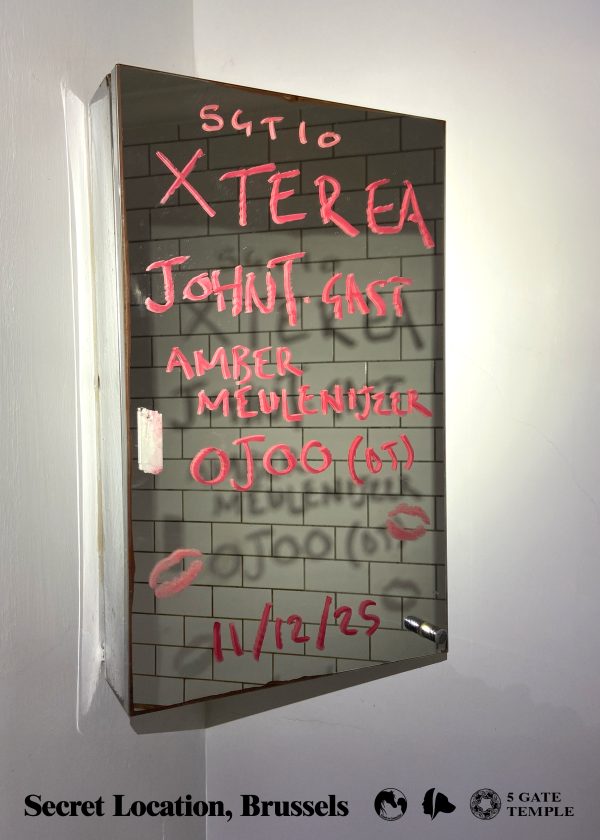 5GT10
XTEREA
JOHN T. GAST
AMBER
MEULENIJZER
OJOO (DJ)
11/12/25
Secret Location, Brussels
5 GATE
TEMPLE